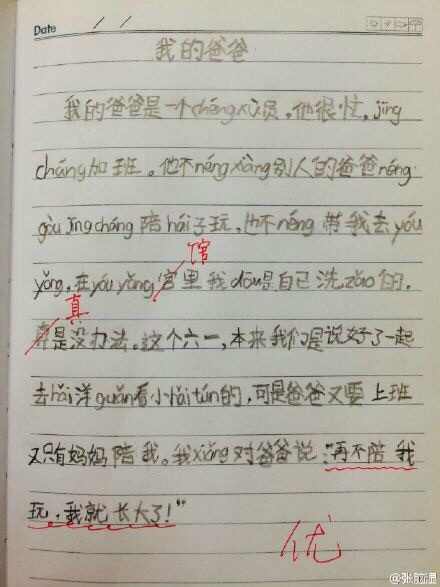 Date / /
我的爸爸
我的爸爸是一个chéngxù员。他很忙,jīng
cháng加班。他不néngxiàng别人的爸爸néng
gòu jīngcháng陪hái子玩,也不néng带我去yóu
馆
yǒng,在yóuyǒng官里我dōu是自己洗zǎo的。
真
真是没办法。这个六一,本来我们是说好了一起
去hǎi洋guǎn看小hǎitún的,可是爸爸又要上班
又只有妈妈陪我。我xiǎng对爸爸说:“再不陪我
玩,我就长大了!”
优
@张脑湿